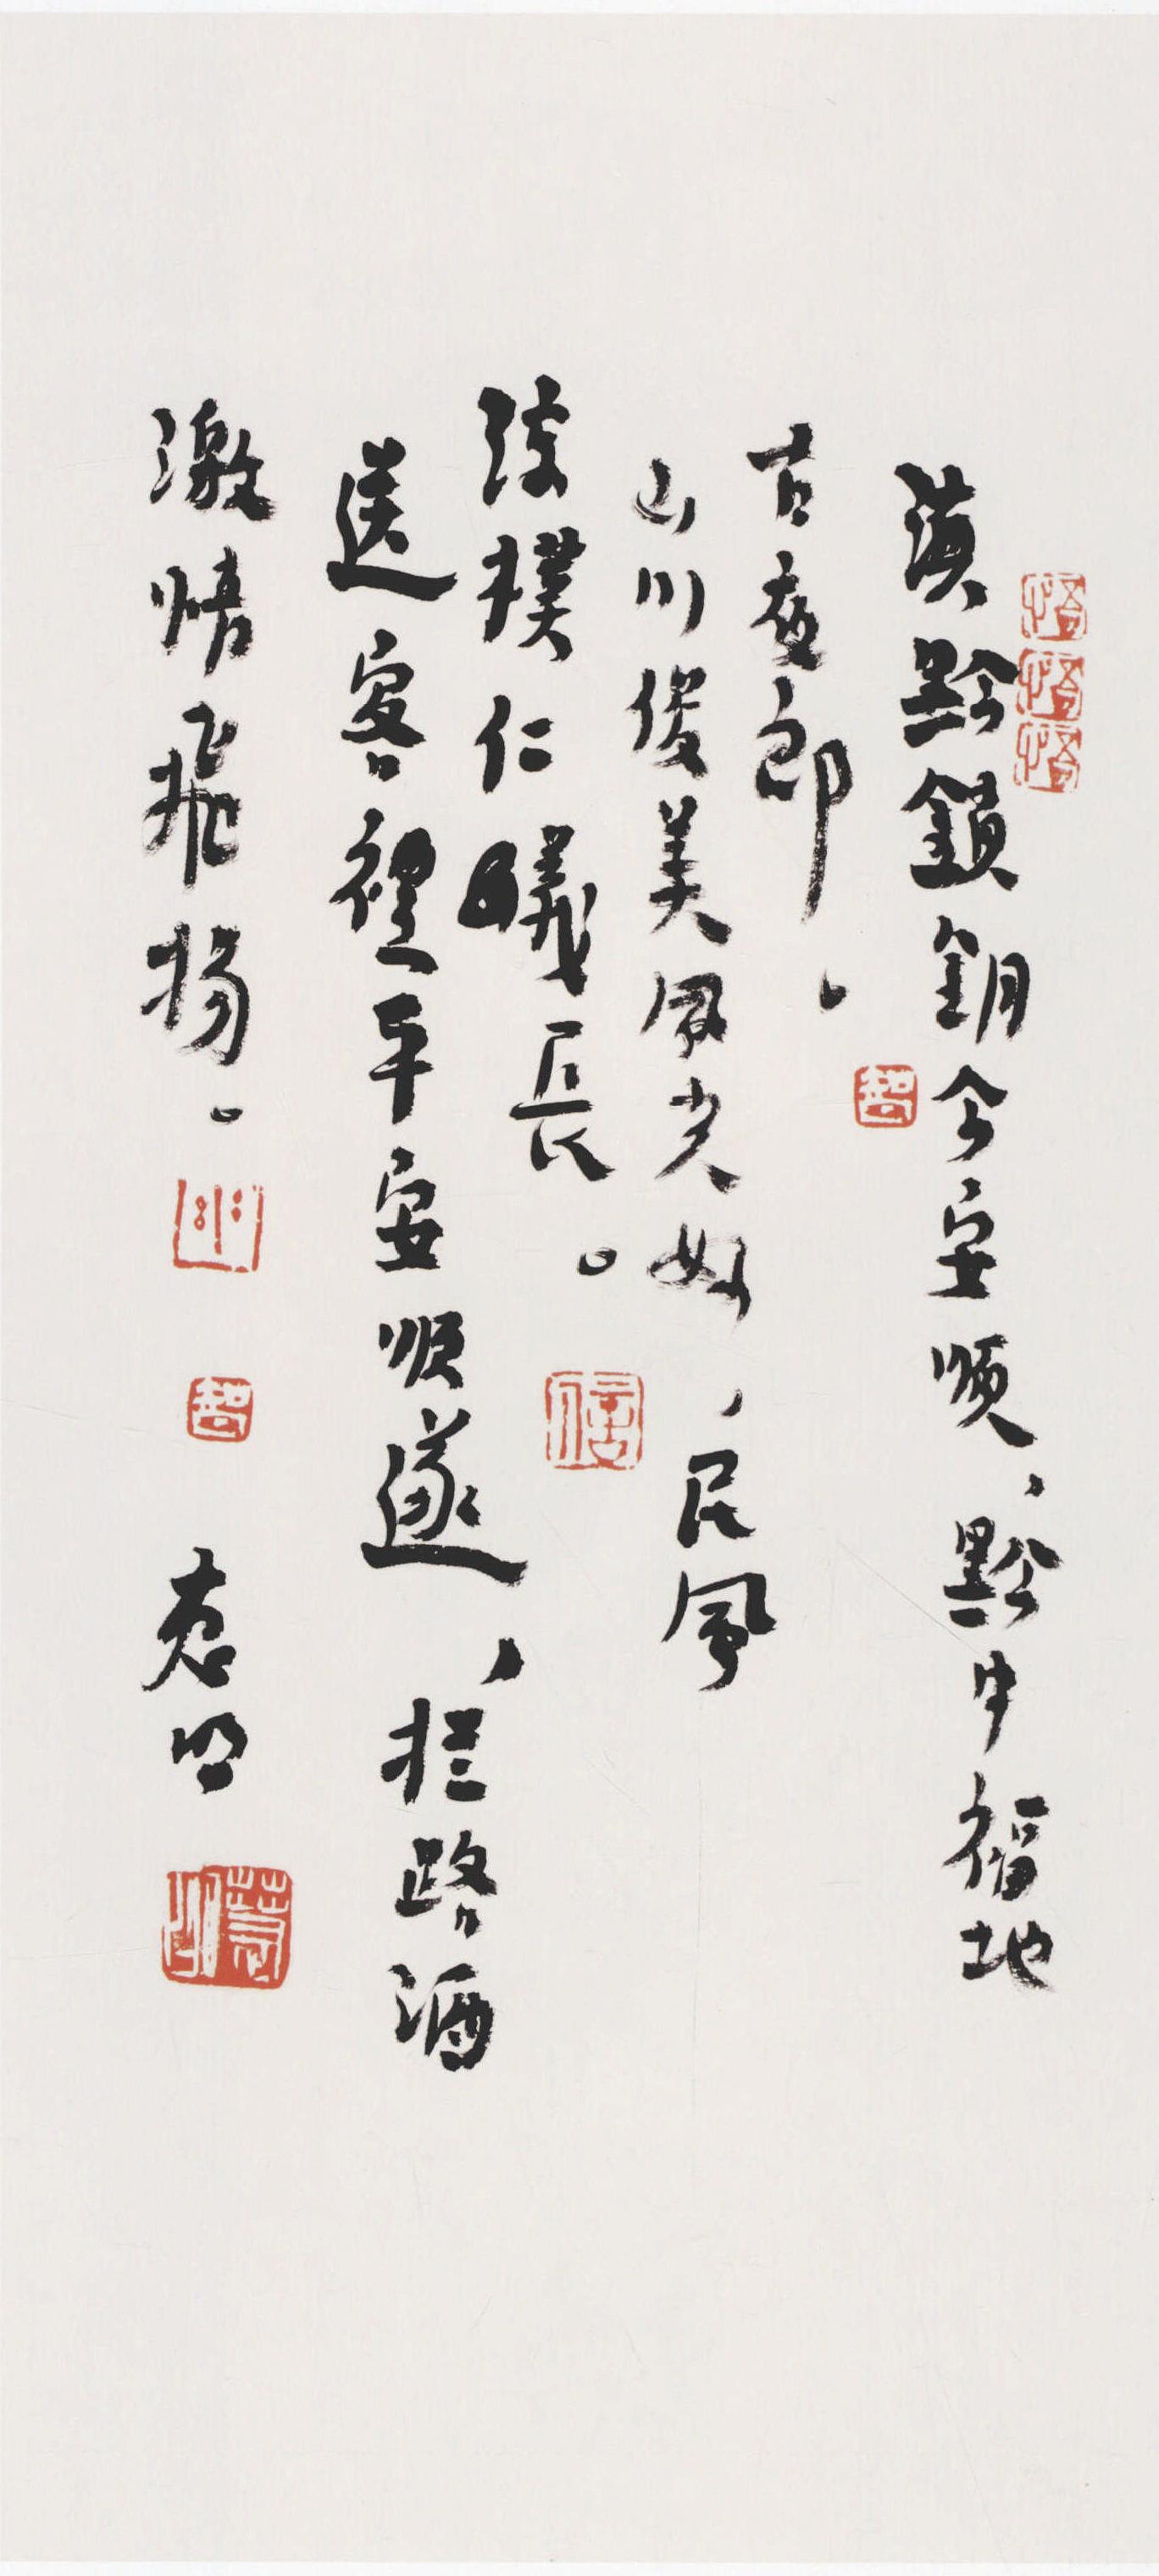 滇黔鎖鈅今安順、黔中福地
古夜郎。
山川俊美風光好，民風
淳樸仁義長。
送客禮平安順遂，拦路酒
激情飛揚。
悟悟悟
智
智